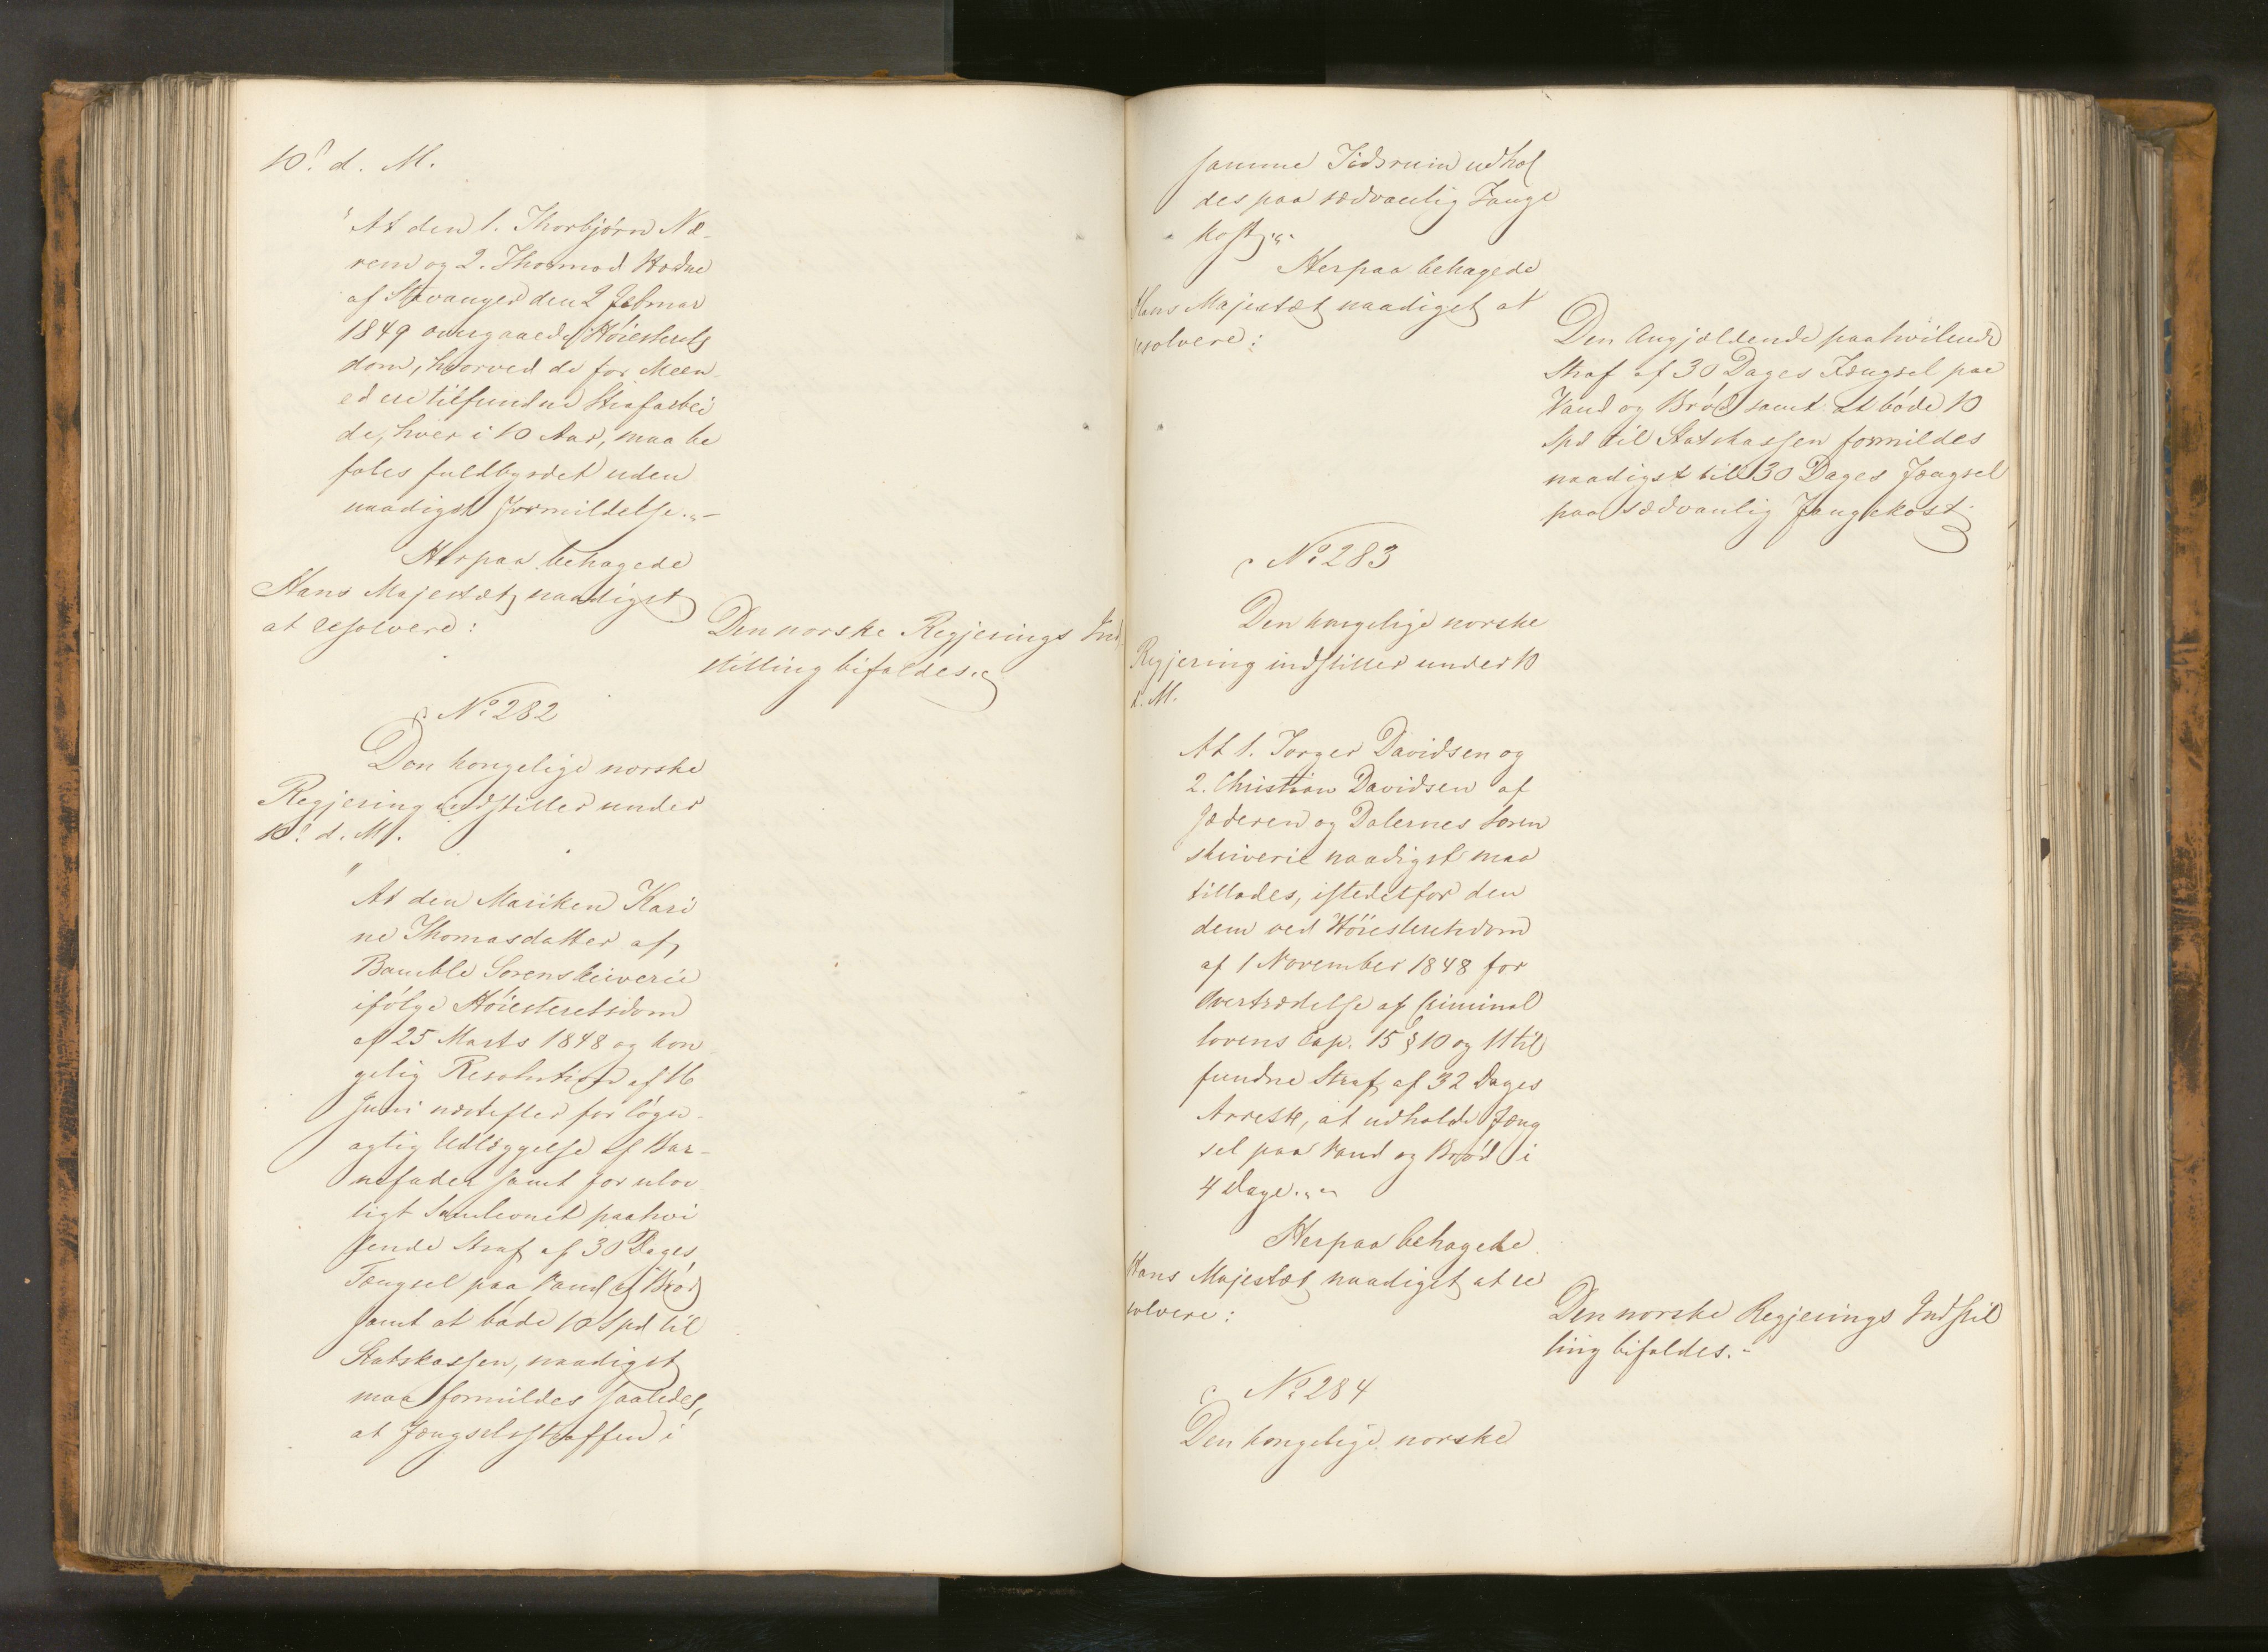 10. d. M.
"At den 1. Thorbjørn Næ-
rem og 2. Thormod Hodne
af Stavanger den 2 Februar
1849 overgaaede Høiesterets
dom, hvorved de for Meen-
ed ere tilfundne Strafarbei
de, hver i 10 Aar, maa be
fales fuldbyrdet uden
naadigst Formildelse."-
Herpaa behagede
Hans Majestæt naadigst
at resolvere:
Den norske Regjerings Ind
stilling bifaldes.
No 282
Den kongelige norske
Regjering indstiller under
10. d. M.
"At den Mariken Kari
ne Thomasdatter af
Bamble Sorenskriverie
ifølge Høiesteretsdom
af 25 Marts 1848 og kon
gelig Resolution af 16
Juni næstefter for løgn-
agtig Udlæggelse af Bar-
nefader samt for ulov
ligt Samleonet paahvi
lende Straf af 30 Dages
Fængsel paa Vand og Brød
samt at bøde 10 Spd til
Statskassen, naadigst
maa formildes saaledes,
at Fængselsstraffen i
samme Tidsrum udhol
des paa sædvanlig Fange
kost"."
Herpaa behagede
Hans Majestæt naadigst at
resolvere:
Den Angjældende paahvilende
Straf af 30 Dages Fængsel paa
Vand og Brød samt at bøde 10
Spd til Statskassen formildes
naadigst til 30 Dages Fængsel
paa sædvanlig Fangekost.
No 283
Den kongelige norske
Regjering indstiller under 10
d. M.
At 1. Torger Davidsen og
2. Christian Davidsen af
Jæderen og Dalernes Soren
skriverie naadigst maa
tillades, istedetfor den
dem ved Høiesteretsdom
af 1 November 1848 for
Overtrædelse af Criminal
lovens Cap. 15 § 10 og 11 til
fundne Straf af 32 Dages
Arrest, at udholde Fæng
sel paa Vand og Brød i
4 Dage."-
Herpaa behagede
Hans Majestæt naadigst at re
solvere:
Den norske Regjerings Indstil
ling bifaldes.-
No 284
Den kongelige norske